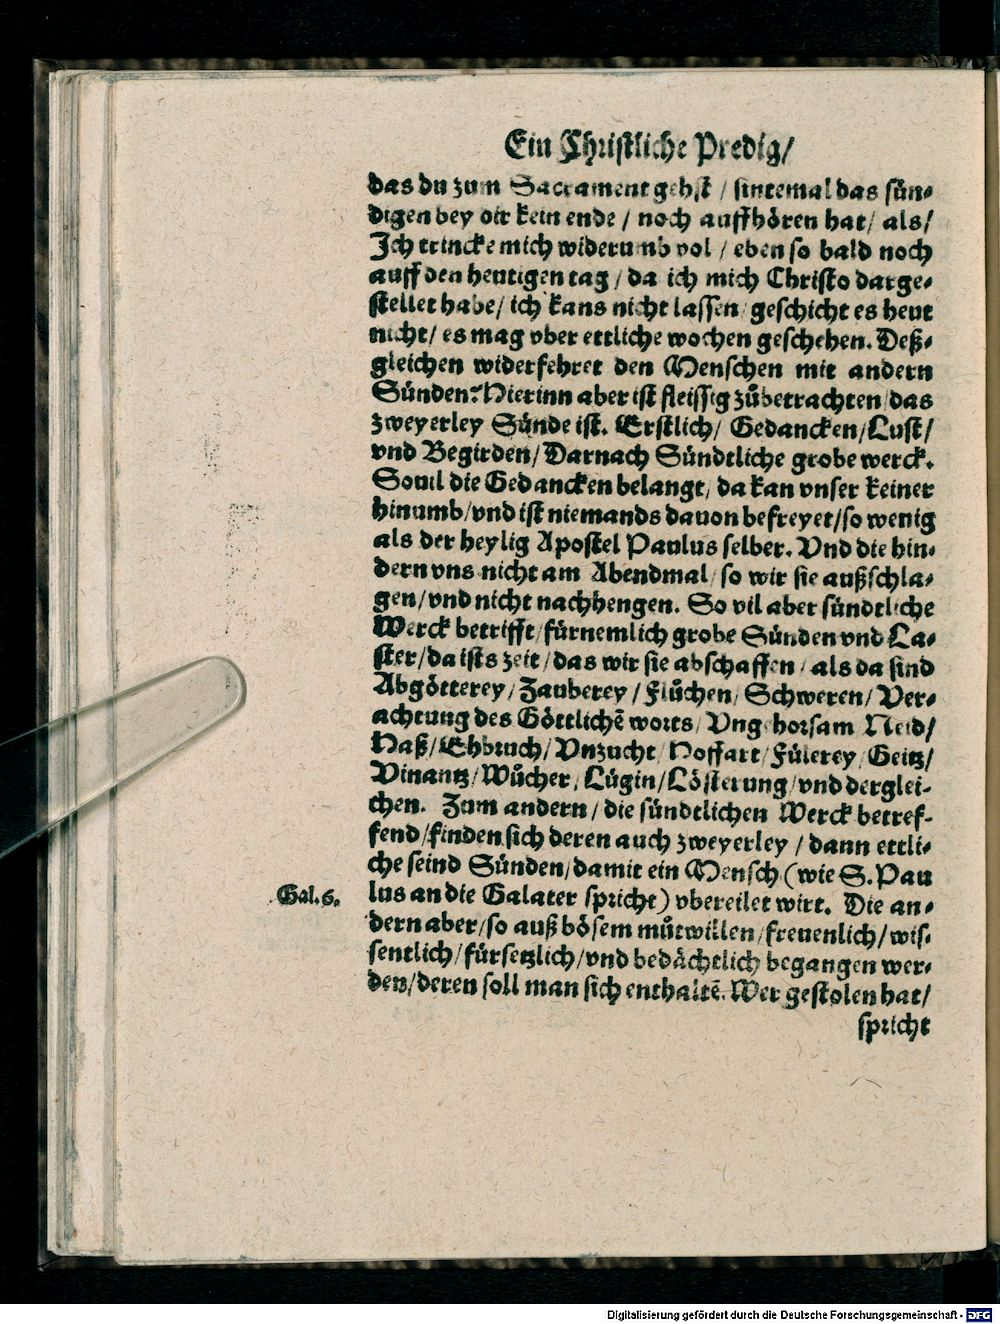 Ein Christliche Predig/
das du zum Sacrament gehst / sintemal das sün⸗
digen bey dir kein ende / noch auffhören hat/ als/
Ich trincke mich widerumb vol / eben so bald noch
auff den heutigen tag / da ich mich Christo darge⸗
stellet habe/ ich kans nicht lassen/ geschicht es heut
nicht/ es mag vber ettliche wochen geschehen. Deß⸗
gleichen widerfehret den Menschen mit andern
Sünden. Hierinn aber ist fleissig zůbetrachten/ das
zweyerley Sünde ist. Erstlich/ Gedancken/ Lust/
vnd Begirden/ Darnach Sündtliche grobe werck.
Souil die Gedancken belangt/ da kan vnser keiner
hinumb/ vnd ist niemands dauon befreyet/ so wenig
als der heylig Apostel Paulus selber. Vnd die hin⸗
dern vns nicht am Abendmal/ so wir sie außschla⸗
gen/ vnd nicht nachhengen. So vil aber sündtliche
Werck betrifft/ fürnemlich grobe Sünden vnd La⸗
ster/ da ists zeit / das wir sie abschaffen/ als da sind
Abgötterey/ Zauberey / Flůchen/ Schweren/ Ver⸗
achtung des Göttlichē worts/ Vngehorsam Neid/
Haß/ Ehbruch/ Vnzucht/ Hoffart/ Fülerey/ Geitz/
Vinantz/ Wůcher/ Lügin/ Lösterung/ vnd derglei⸗
chen. Zum andern / die sündtlichen Werck betref⸗
fend/ finden sich deren auch zweyerley / dann ettli⸗
che seind Sünden/ damit ein Mensch (wie S. Pau
Gal. 6. lus an die Galater spricht) vbereilet wirt. Die an⸗
dern aber/ so auß bösem můtwillen/ freuenlich/ wis⸗
sentlich/ fürsetzlich/ vnd bedächtlich begangen wer⸗
den/ deren soll man sich enthaltē. Wer gestolen hat/
spricht
Digitalisierung gefördert durch die Deutsche Forschungsgemeinschaft - DFG